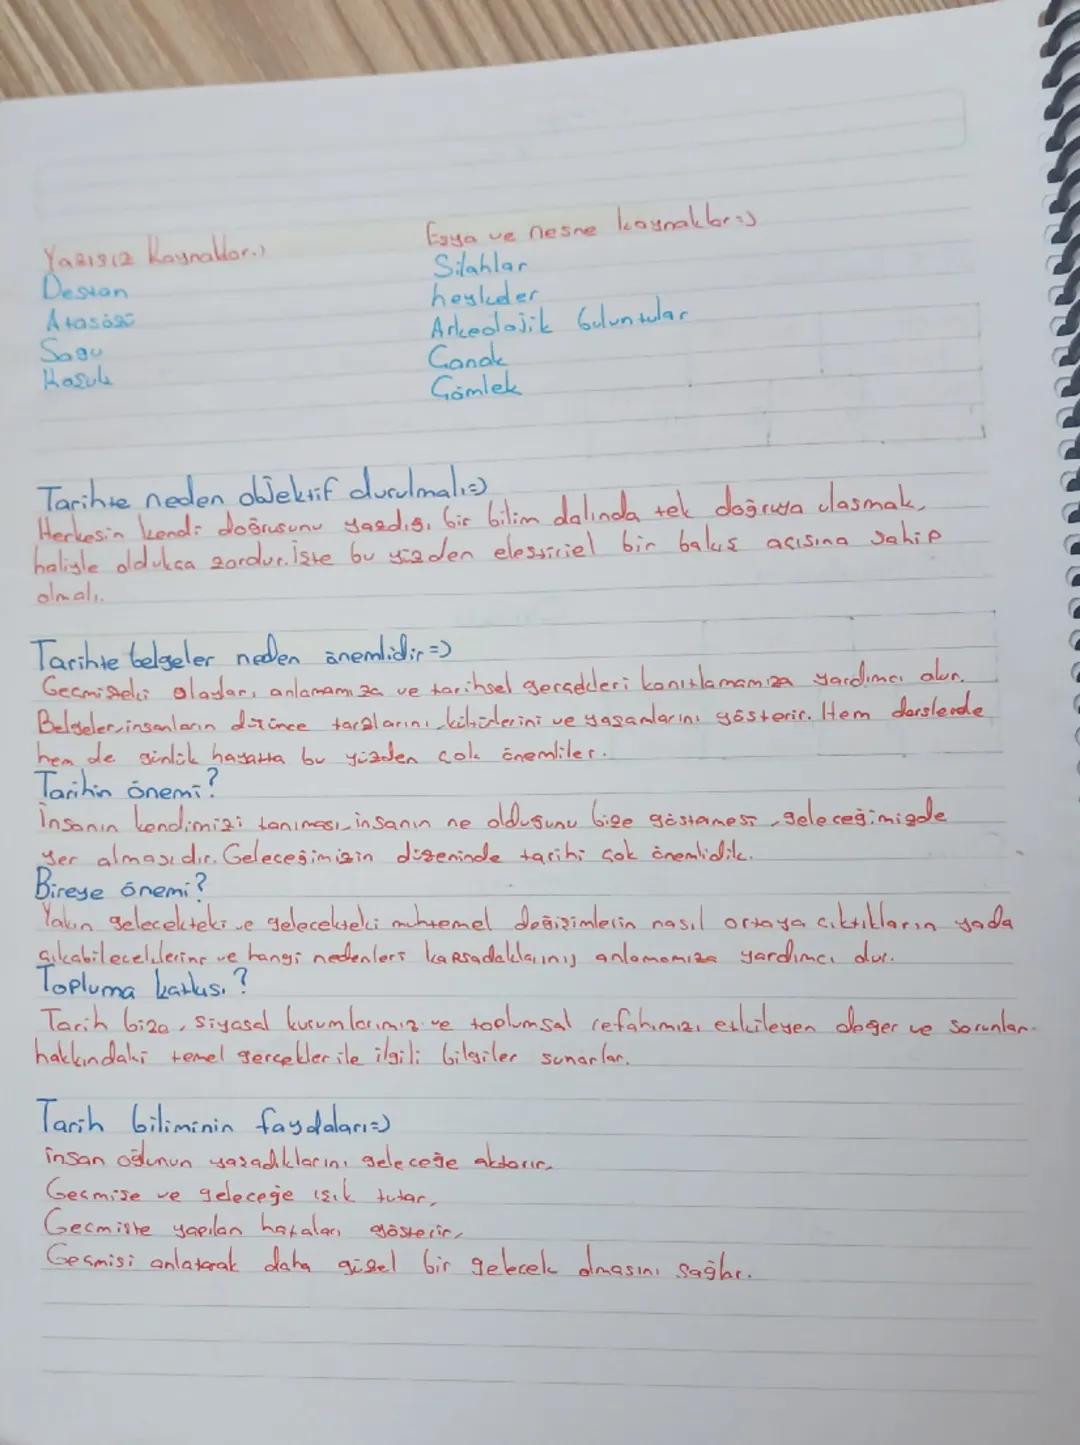 Yazısız Kaynaklar:)
Destan
Atasözü
Sagu
Koşuk
Eşya ve nesne kaynaklar=)
Silahlar
heykeller
Arkeolojik buluntular
Çanak
Gömlek
Tarihte neden objektif durulmalı=)
Herkesin kendi doğrusunu yazdığı bir bilim dalında tek doğruya ulaşmak,
haliyle oldukça zordur. İşte bu yüzden eleştiriel bir bakış açısına sahip
olmalı.
Tarihte belgeler neden önemlidir=)
Geçmişteki olayları anlamamıza ve tarihsel gerçekleri kanıtlamamıza yardımcı olur.
Belgeler, insanların düşünce tarzlarını, kültürlerini ve yaşamlarını gösterir. Hem derslerde
hem de günlük hayatta bu yüzden çok önemliler.
Tarihin önemi?
İnsanın kendimizi tanıması, insanın ne olduğunu bize göstermesi, geleceğimizde
yer almasıdır. Geleceğimizin düzeninde tarihi çok önemlidik.
Bireye önemi?
Yakın gelecekteki ve gelecekteki muhtemel değişimlerin nasıl ortaya çıktıkların yada
çıkabileceklerine ve hangi nedenleri anlamamıza yardımcı olur.
Topluma katkısı?
Tarih bize, siyasal kurumlarımız ve toplumsal refahımızı etkileyen değer ve sorunlar
hakkındaki temel gerçekler ile ilgili bilgiler sunarlar.
Tarih biliminin faydaları=)
insan oğlunun yaşadıklarını geleceğe aktarır,
Geçmişe ve geleceğe ışık tutar,
Geçmişte yapılan hataları gösterir,
Geçmişi anlatarak daha güzel bir gelecek olmasını sağlar.